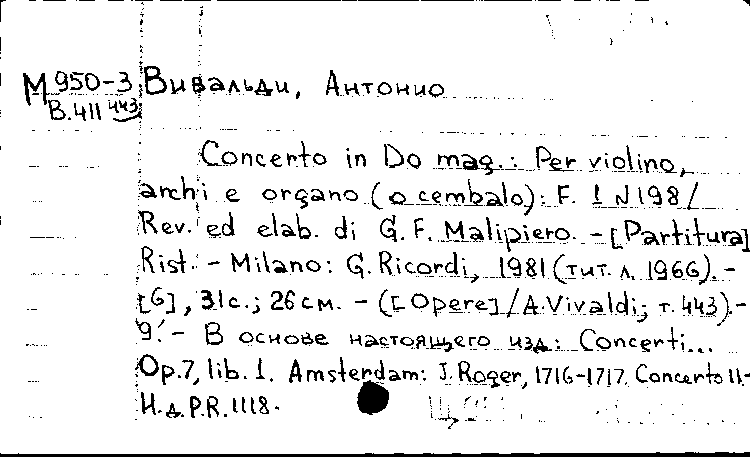 М 950-3 Вивальди, Антонио
В.411 443
Concerto in Do mag.: Per violino,
archi e organo (o cembalo): F. I N 198/
Rev. ed elab. di G.F. Malipiero. - [Partitura]
Rist. - Milano: G. Ricordi, 1981 (тит. л. 1966). -
[6], 31с.; 26см. - ([Opere] / A. Vivaldi; т. 443). -
9. - В основе настоящего изд.: Concerti...
Op. 7, lib. 1. Amsterdam: J. Roger, 1716-1717. Concerto 11-
Н.д. P.R. 1118.